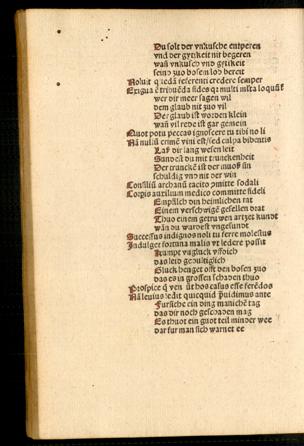 Du solt der vnkusche entperen
vnd der gytikeit nit begeren
wañ vnkusch vnd gytikeit
seind zuo bosem lob bereit
Noluit quedã referenti credere semper
Exigua ẽ tribuẽda fides qr multi mlta loquũt
wer dir meer sagen wil
dem glaub nit zuo vil
Der glaub ist worden klein
wañ vil rede ist gar gemein
Quot potu peccas ignoscere tu tibi noli
Nã nullũ crimẽ vini est/sed culpa bibentis
Laß dir lang wesen leit
Sundest du mit trunckenheit
Der trunckẽ ist der muoß sin
schuldig vnd nit der win
Consiliũ archanũ tacito cõmitte sodali
Corpis auxilium medico committe fideli
Empfilch din heimlichen rat
Einem verschwigẽ gesellen drat
Thuo einem getruwen artzet kundt
wañ du wurdest vngesundt
Successus indignos noli tu ferre molestus
Indulget fortuna malis vt ledere possit
Kumpt vngluck vff dich
das leid gedultiglich
Gluck henget offt den bosen zuo
das es in grossen schaden thuo
Prospice q̃ veniũt hos casus esse ferẽdos
Nã leuius ledit quicquid p̃uidimus ante
Fursiche ein ding manichẽ tag
das dir noch geschaden mag
Es thuot ein guot teil minder wee
dar fur man sich warnet ee